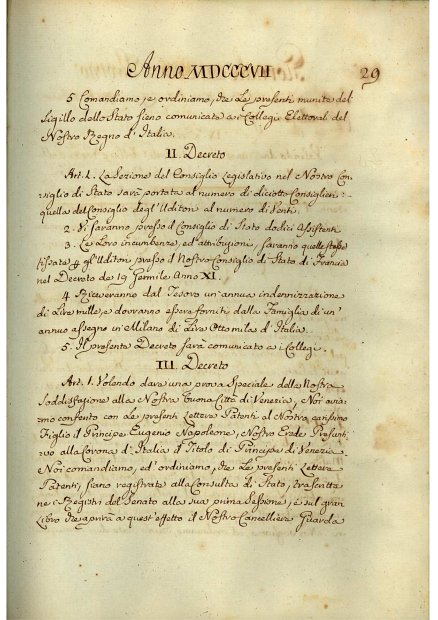 Anno MDCCCVII
29
5 Comandiamo, e ordiniamo, che Le presenti munite del
Sigillo dello Stato sieno comunicate a i Collegi Elettorali del
Nostro Regno d'Italia.
II. Decreto
Art. 1. La Sezione del Consiglio Legislativo nel Nostro Con-
siglio di Stato sarà portata al numero di diciotto Consiglieri:
quella del Consiglio degl'Uditori al numero di Venti.
2. Vi saranno presso il Consiglio di Stato dodici Assistenti
3. Le Loro incumbenze, ed attribuzioni, saranno quelle stesse
fissate gl'Uditori presso il Nostro Consiglio di Stato di Francia
nel Decreto de 19 Germile Anno XI.
4 Riceveranno dal Tesoro un'annua indennizzazione
di Lire mille, e dovranno essere forniti dalla Famiglia di un'
annuo assegno in Milano di Lire Otto mila d'Italia.
5. Il presente Decreto sarà comunicato a i Collegi.
III. Decreto
Art. 1. Volendo dare una prova Speciale della Nostra
Soddisfazione alla Nostra buona Città di Venezia, Noi avia-
mo confento con Le presenti Lettere Patenti al Nostro carissimo
Figlio il Principe Eugenio Napoleone, Nostro Erede Presunt-
ivo alla Corona d'Italia il Titolo di Principe di Venezia.
Noi comandiamo, ed ordiniamo, che Le presenti Lettere
Patenti, siano registrate alla Consulta di Stato, trascritte
ne i Registri del Senato alla sua prima Sessione, e sul gran
Libro che aprirà a quest'effetto il Nostro Cancelliere Guarda